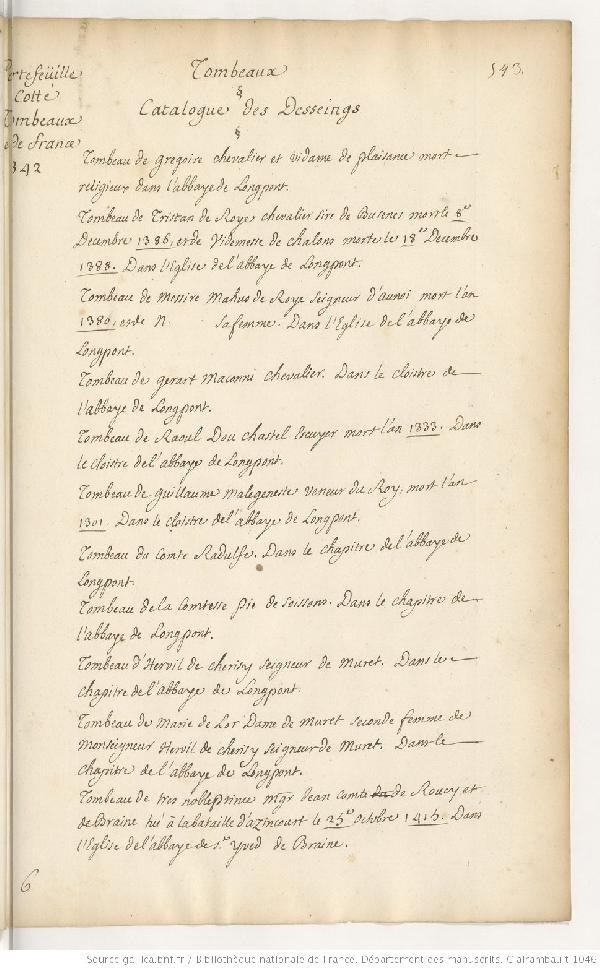 Tombeaux 543.
§
Catalogue des Desseings
§
ortefeüille
Cotté
Tombeaux
de France
342
Tombeau de gregoire chevalier et vidame de plaisance mort
religieux dans l'abbaye de Longpont.
Tombeau de Tristan de Roye chevalier sire de Busenes mort le 8e
Decembre 1386, et de Videmesse de chalons morte le 18e Decembre
1388. Dans l'Eglise de l'abbaye de Longpont.
Tombeau de Messire Mahus de Roye Seigneur d'aunoi mort l'an
1380, et de N sa femme. Dans l'Eglise de l'abbaye de
Longpont.
Tombeau de gerart Maconni chevalier. Dans le cloistre de
l'abbaye de Longpont.
Tombeau de Raoul Dou chastel Escuyer mort l'an 1333. Dans
le cloistre de l'abbaye de Longpont.
Tombeau de guillaume malegeneste veneur du Roy, mort l'an
1301. Dans le cloistre de l'abbaye de Longpont.
Tombeau du Comte Radulfe. Dans le chapitre de l'abbaye de
Longpont.
Tombeau de la Comtesse de Soissons. Dans le chapitre de
l'abbaye de Longpont.
Tombeau d'Hervil de cherisy Seigneur de Muret. Dans le
chapitre de l'abbaye de Longpont.
Tombeau de Marie de Lor Dame de Muret seconde femme de
Monseigneur Hervil de cherisy Seigneur de Muret. Dans le
chapitre de l'abbaye de Longpont.
Tombeau de tres noble prince mgr Jean Comte de Roucy et
de Braine tué à la bataille d'azincourt le 25e octobre 1415. Dans
l'Eglise de l'abbaye de St. Yved de Braine.
6
Source gallica.bnf.fr / Bibliothèque nationale de France. Département des manuscrits. Clairambault 1046